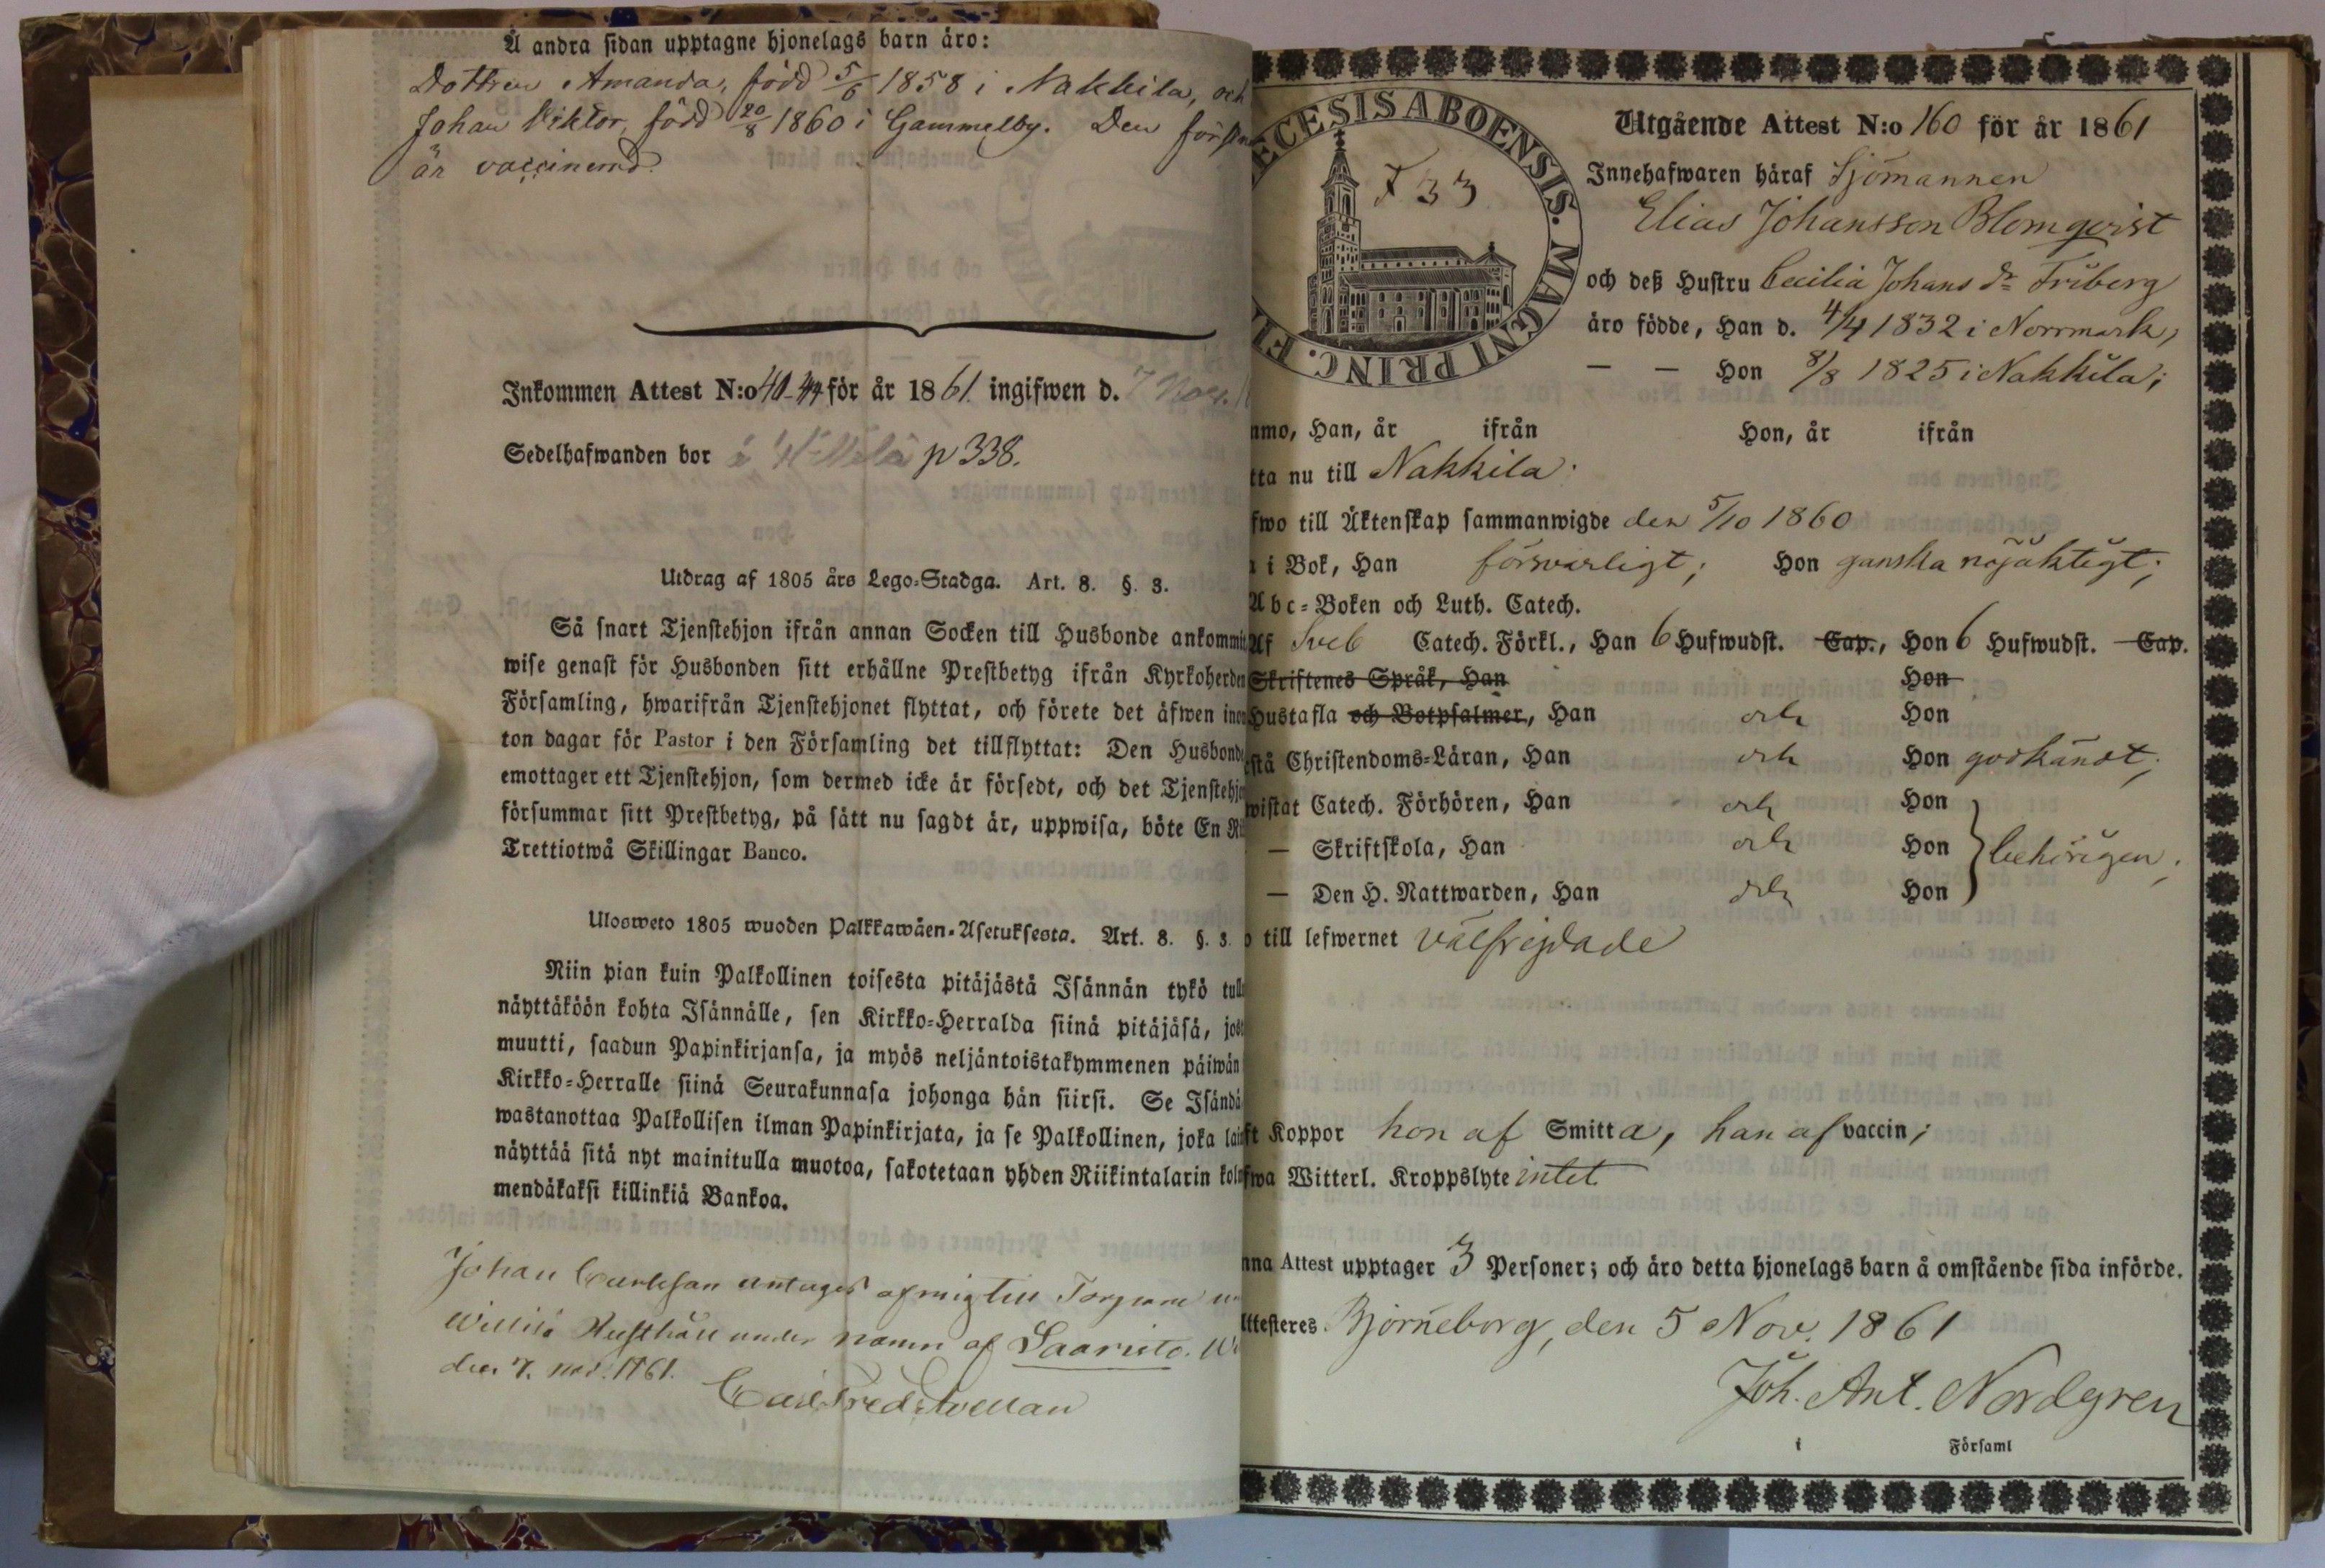 Å andra sidan upptagne hjonelags barn äro:
Dottren Amanda, född 5/6 1858 i Nakkila, och
Johan Viktor, född 20/8 1860 i Gammelby. Den
är vaccinerad.
Inkommen Attest N:o 40-44 för år 1861 ingifwen d. 7 Nov.
Sedelhafwanden bor p 338.
Utdrag af 1805 års Lego-Stadga. Art. 8. §. 3.
Så snart Tjenstehjon ifrån annan Socken till Husbonde ankommit
wise genast för Husbonden sitt erhållne Prestbetyg ifrån Kyrkoherden
Församling, hwarifrån Tjenstehjonet flyttat, och förete det äfwen
ton dagar för Pastor i den Församling det tillflyttat: Den Husbonde
emottager ett Tjenstehjon, som dermed icke är försedt, och det
försummar sitt Prestbetyg, på sätt nu sagdt är, uppwisa, böte En
Trettiotwå Skillingar Banco.
Ulosweto 1805 wuoden Palkkawäen-Asetuksesta. Art. 8. §. 3.
Niin pian kuin Palkollinen toisesta pitäjästä Isännän tykö
näyttäköön kohta Isännälle, sen Kirkko-Herralda siinä pitäjäsä,
muutti, saadun Papinkirjansa, ja myös neljäntoistakymmenen päiwän
Kirkko-Herralle siinä Seurakunnasa johonga hän siirsi. Se Isändä
wastanottaa Palkollisen ilman Papinkirjata, ja se Palkollinen, joka
näyttää sitä nyt mainitulla muotoa, sakotetaan yhden Riikintalarin
mendäkaksi killinkiä Bankoa.
Johan antages af mig till
under namn af Saaristo.
den 7. nov. 1861.
ECESIS ABOENSIS. MAGNI PRINC. FI
F 33
Utgående Attest N:o 160 för år 1861
Innehafwaren häraf Sjömannen
Elias Johansson Blomqvist
och deß Hustru Cecilia Johans dr Friberg
äro födde, Han d. 4/4 1832 i Norrmark,
— — Hon 8/8 1825 i Nakkila;
mmo, Han, år ifrån Hon, år ifrån
tta nu till Nakkila.
fwo till Äktenskap sammanwigde den 5/10 1860
i Bok, Han försvarligt; Hon ganska nöjaktigt;
Abc-Boken och Luth. Catech.
Af Sveb Catech. Förkl., Han 6 Hufwudst. Cap., Hon 6 Hufwudst. Cap.
Skriftenes Språk, Han Hon
Hustafla och Botpsalmer, Han och Hon
stå Christendoms-Läran, Han och Hon godkändt;
wistat Catech. Förhören, Han och Hon
— Skriftskola, Han och Hon behörigen;
— Den H. Nattwarden, Han och Hon
till lefwernet välfrejdade
ft Koppor hon af Smitta, han af vaccin;
fwa Witterl. Kroppslyte intet
nna Attest upptager 3 Personer; och äro detta hjonelags barn å omstående sida införde.
Attesteres Björneborg, den 5 Nov. 1861
Joh. Ant. Nordgren
i Församl